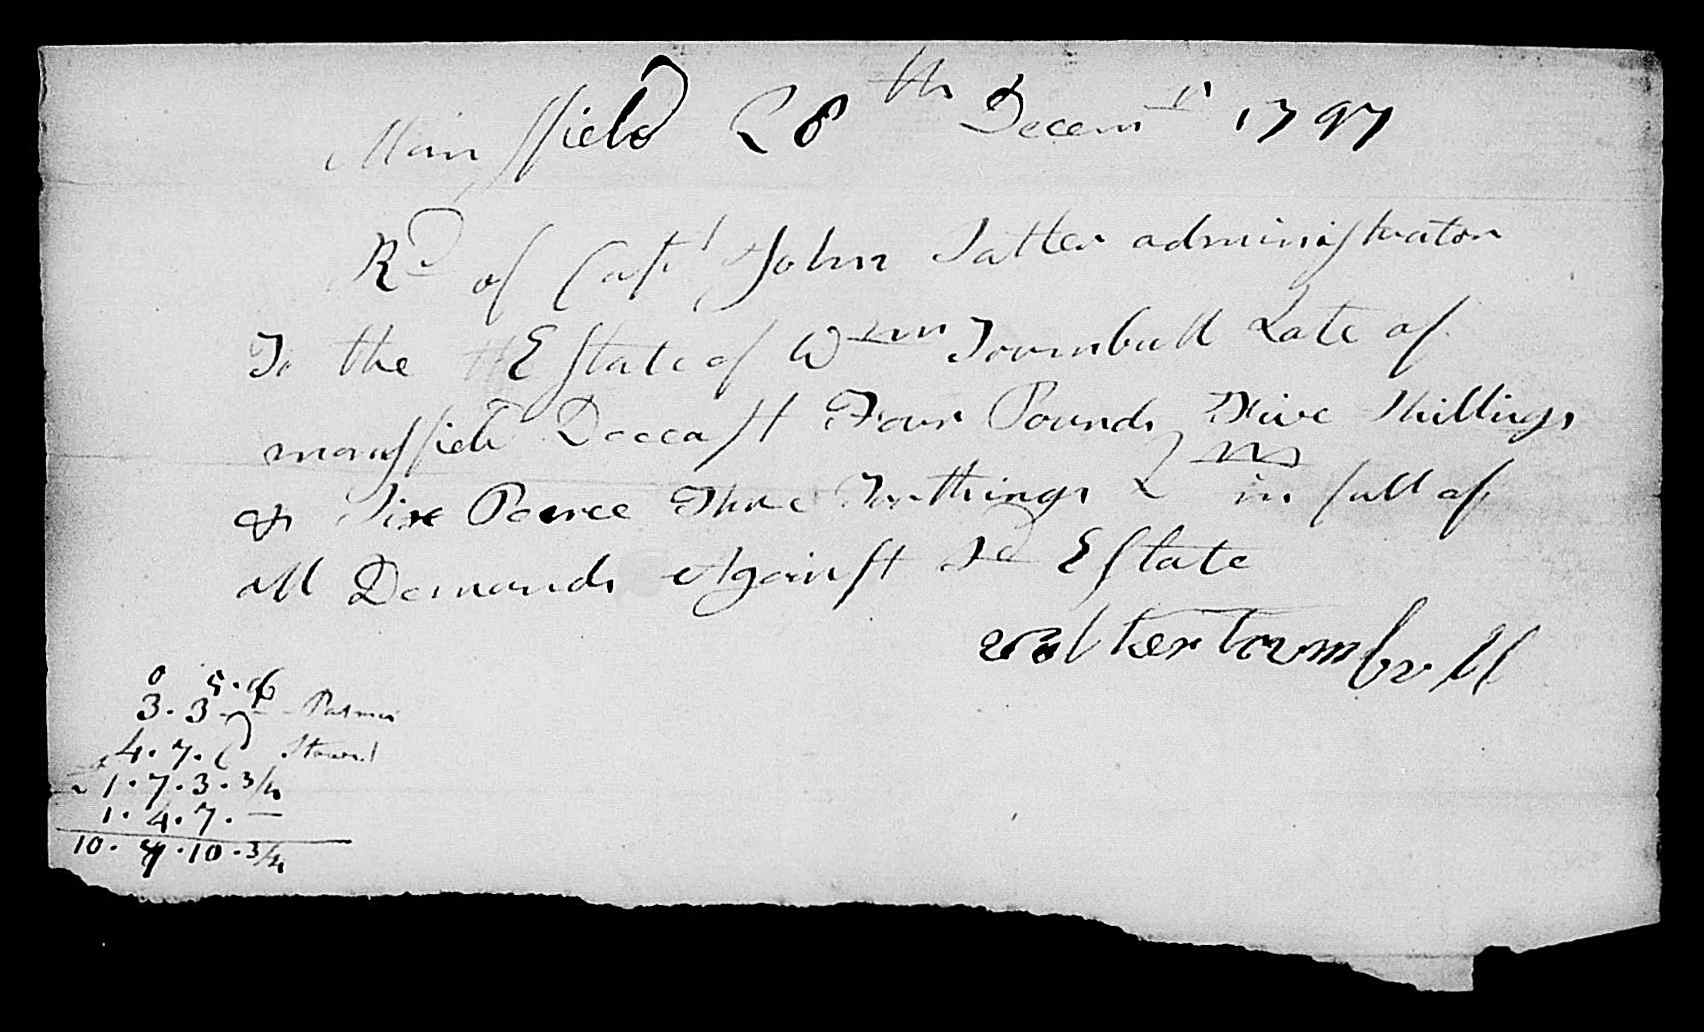 Mansfield 28th Decemr 1797
Rd of Capt John Salter administrator
To the Estate of Wm Tournbull Late of
mansfield Deceast Four Pounds Five Shillings
& Six Pence Three Forthings L m in full of
all Demands Against Sd Estate
walter tournbull
0 5. 6
3. 3
4. 7. 6
1. 7. 3. 3/4
1. 4. 7. —
10. 7. 10. 3/4